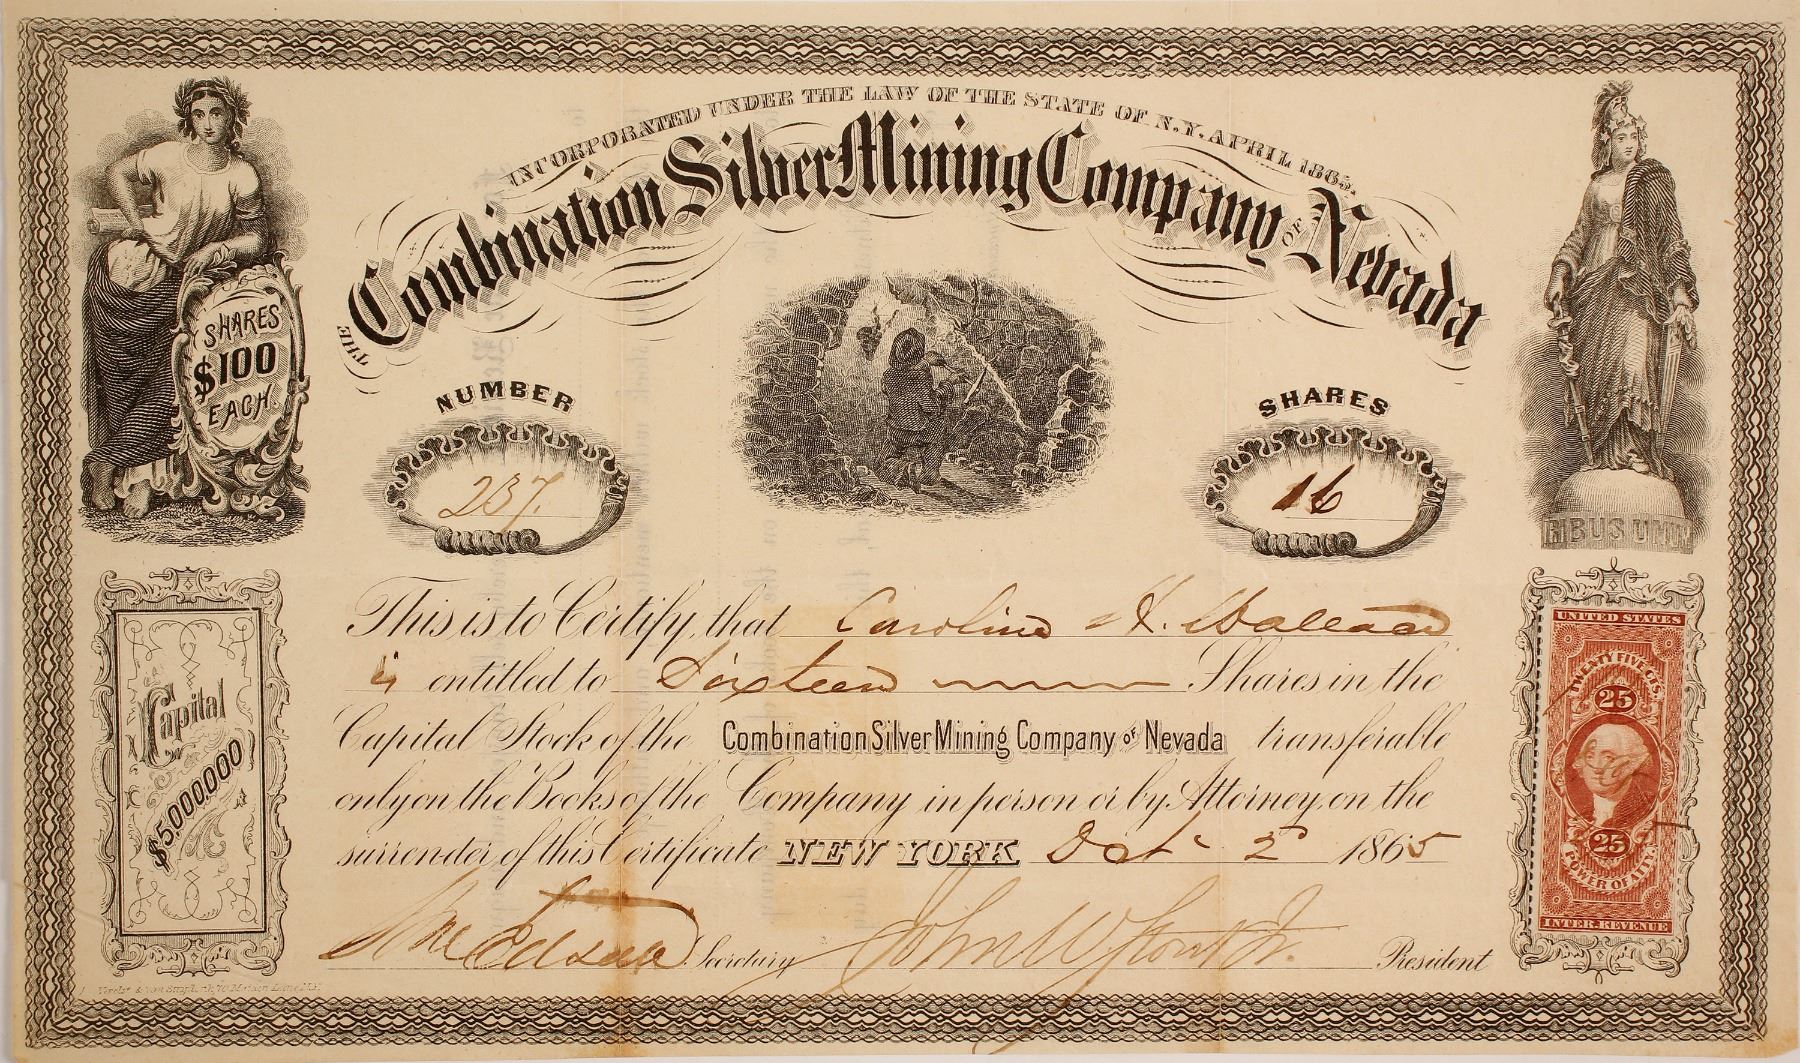 INCORPORATED UNDER THE LAW OF THE STATE OF N.Y. APRIL 1865.
THE Combination Silver Mining Company OF Nevada
SHARES
$100
EACH.
NUMBER
237.
SHARES
16
RIBUS UNUM
This is to Certify, that Caroline H. Wallace
is entitled to Sixteen Shares in the
Capital Stock of the Combination Silver Mining Company of Nevada transferable
only on the Books of the Company in person or by Attorney, on the
surrender of this Certificate NEW YORK Oct 2d 1865
Wm Edson Secretary John W President
Capital
$5,000,000
UNITED STATES
TWENTY FIVE CTS.
25
25
POWER OF ATT'Y.
INTER. REVENUE
70 Maiden Lane N.Y.